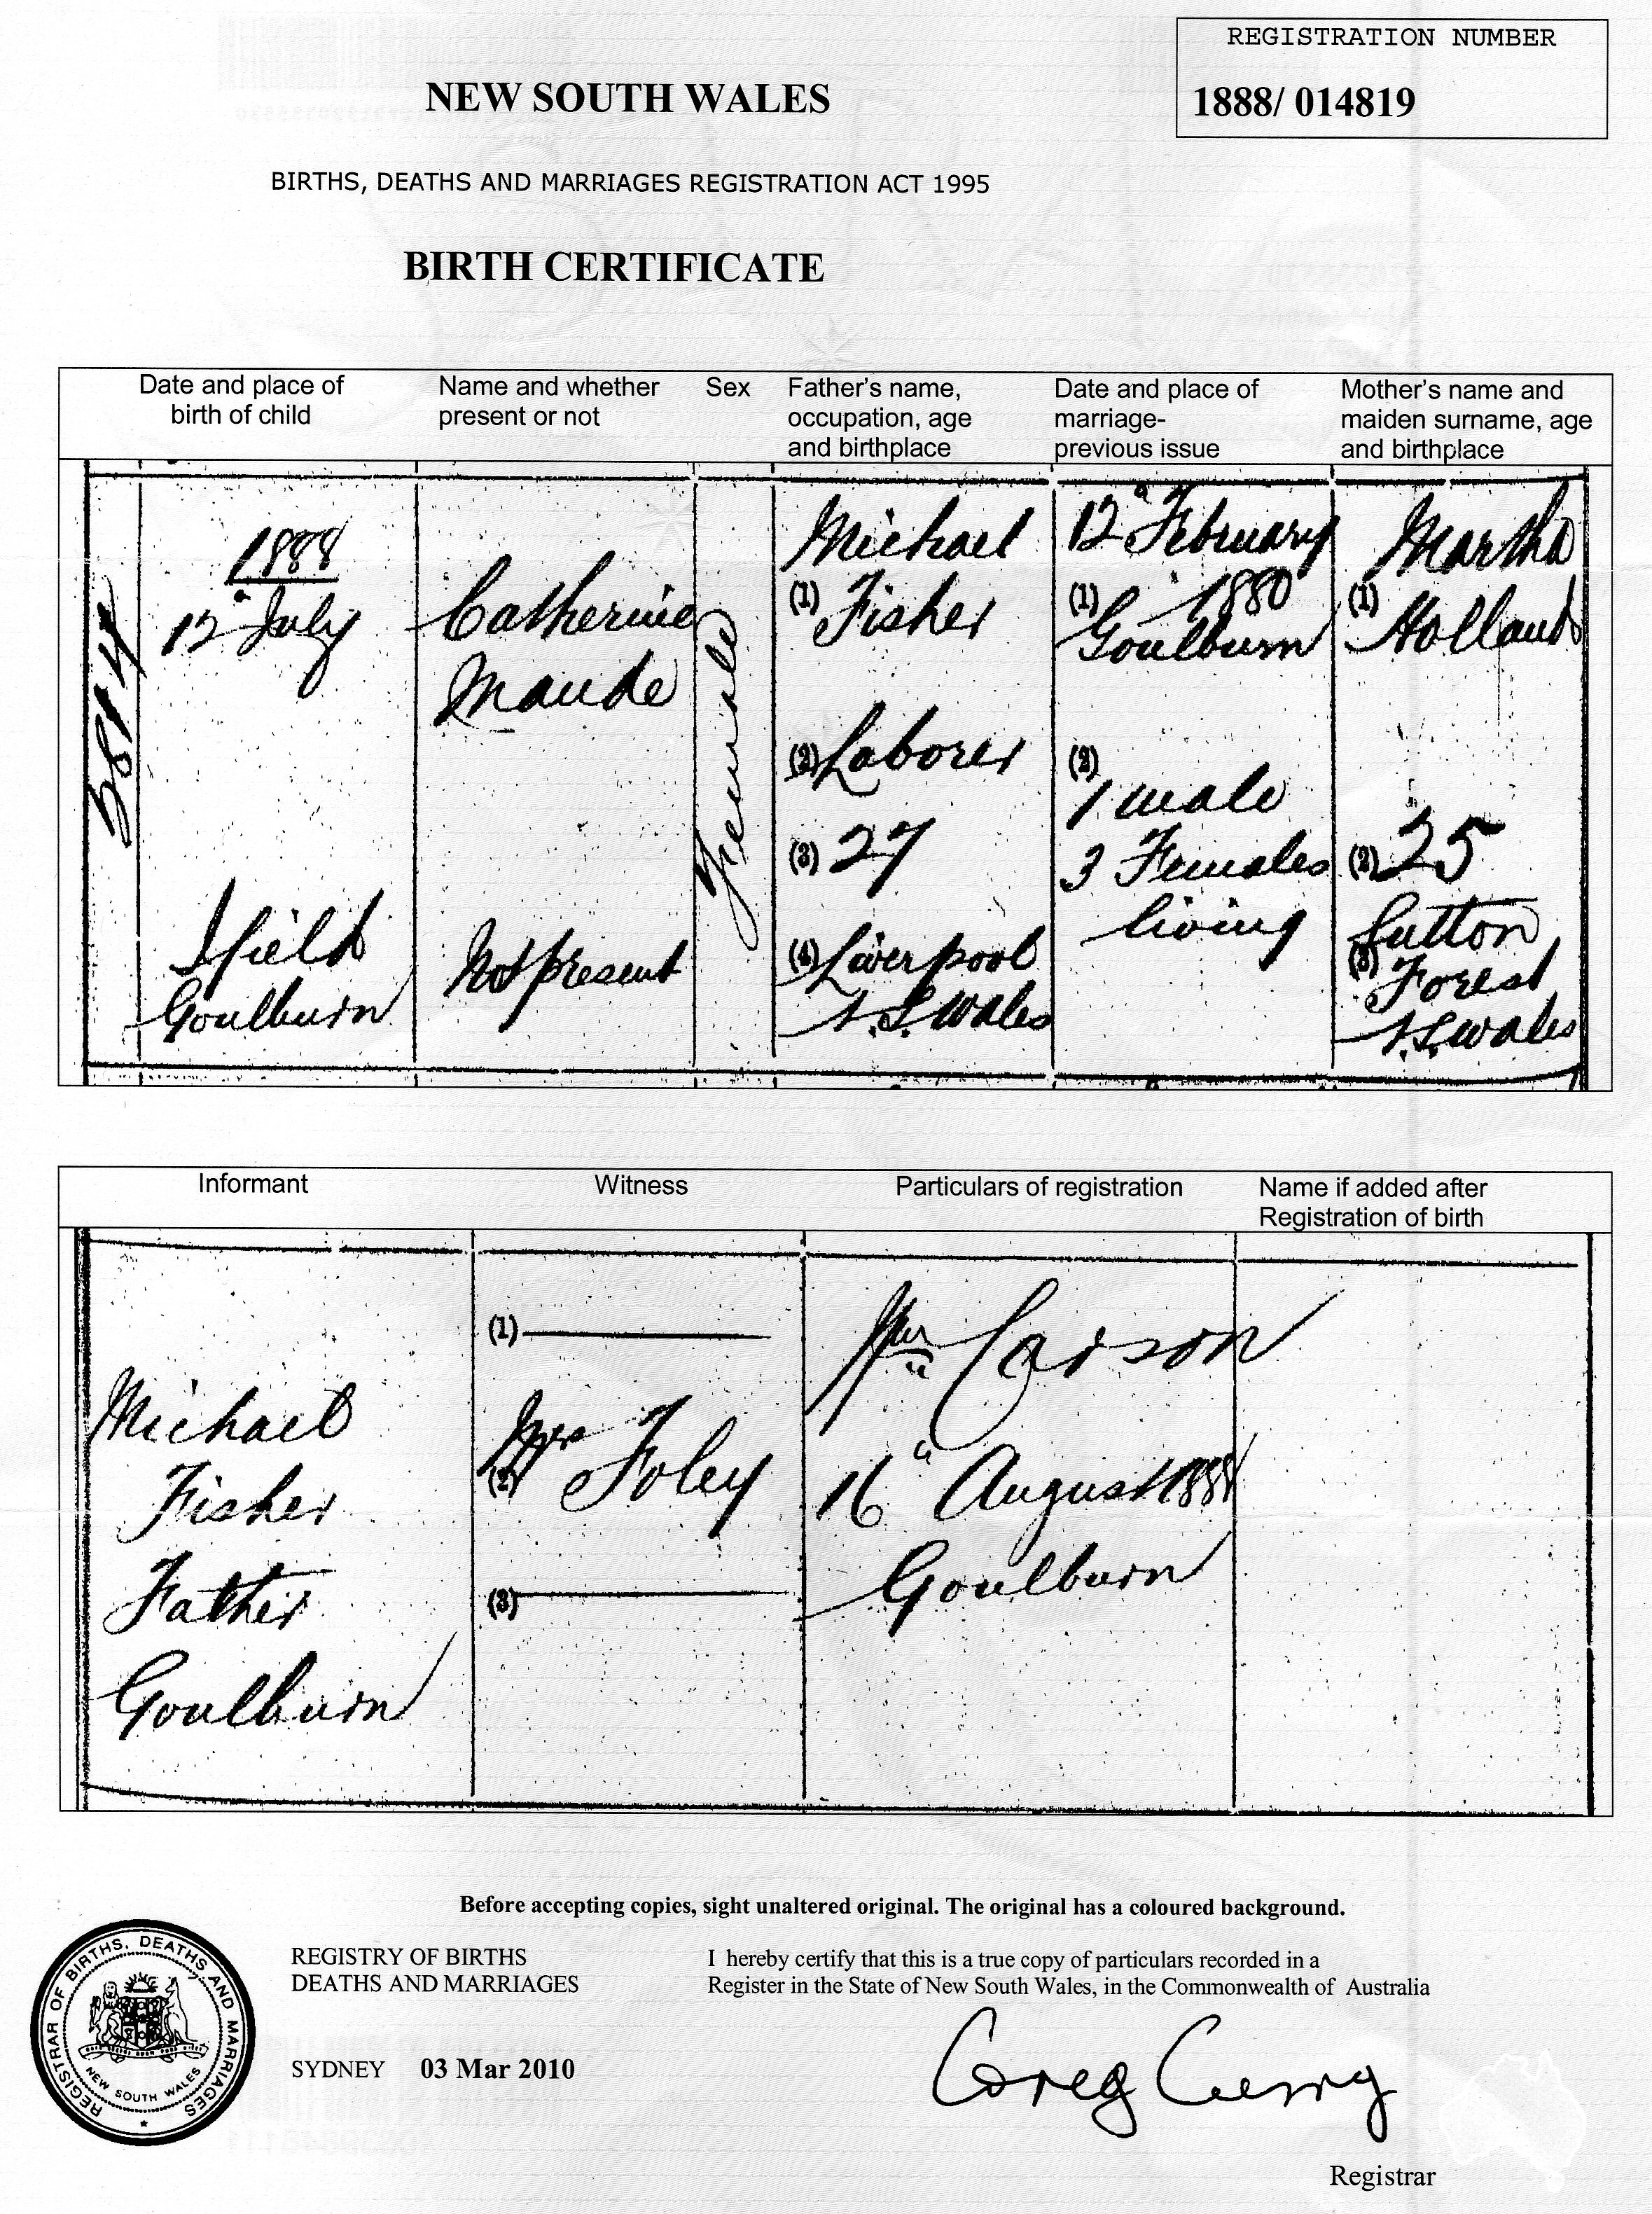 REGISTRATION NUMBER
1888/ 014819
NEW SOUTH WALES
BIRTHS, DEATHS AND MARRIAGES REGISTRATION ACT 1995
BIRTH CERTIFICATE
Date and place of
birth of child
Name and whether
present or not
Sex
Father's name,
occupation, age
and birthplace
Date and place of
marriage-
previous issue
Mother's name and
maiden surname, age
and birthplace
5814
1888
12" July
Ifield
Goulburn
Catherine
Maude
Not present
Female
Michael
(1) Fisher
(2) Laborer
(3) 27
(4) Liverpool
N.S.Wales
12" February
(1) 1880
Goulburn
(2)
1 male
3 Females
living
Martha
(1) Holland
(2) 25
Sutton
(3) Forest
N.S.Wales
Informant
Witness
Particulars of registration
Name if added after
Registration of birth
Michael
Fisher
Father
Goulburn
(1)
Mrs
(2) Foley
(3)
Wm Carson
16" August 1888
Goulburn
Before accepting copies, sight unaltered original. The original has a coloured background.
REGISTRAR OF BIRTHS, DEATHS AND MARRIAGES
NEW SOUTH WALES
REGISTRY OF BIRTHS
DEATHS AND MARRIAGES
SYDNEY 03 Mar 2010
I hereby certify that this is a true copy of particulars recorded in a
Register in the State of New South Wales, in the Commonwealth of Australia
Greg Curry
Registrar